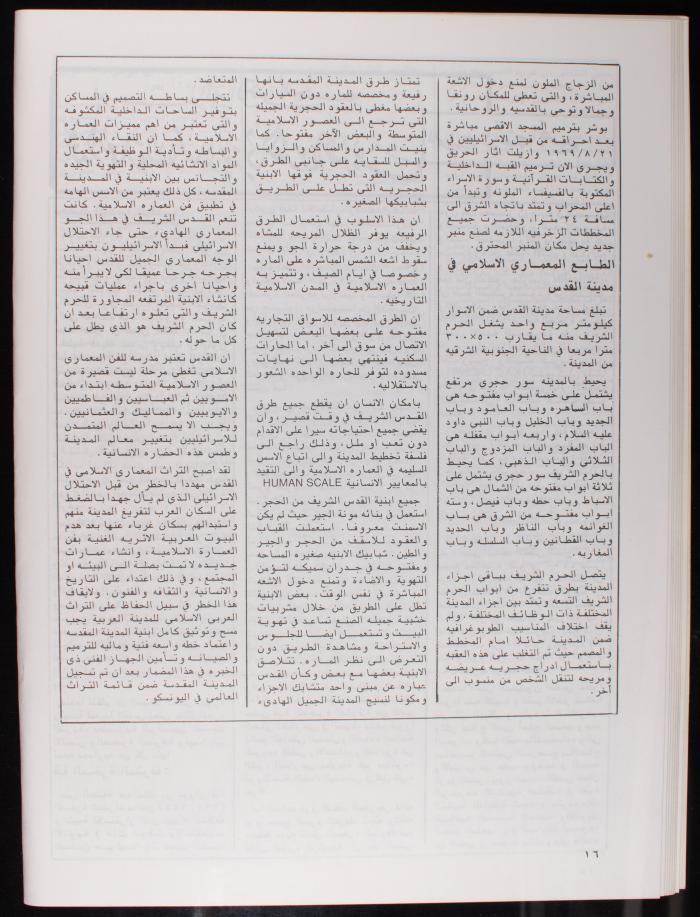 من الزجاج الملون لمنع دخول الاشعة
المباشرة ، والتى تعطى للمكان رونقا
وجمالا وتوحي بالقدسيه والروحانية .
بوشر بترميم المسجد الاقصى مباشرة
بعد احراقه من قبل الاسرائيليين في
١٩٦٩/٨/٢١ وازيلت اثار الحريق
ويجرى الان ترميم القبه الداخلية
والكتابات القرآنية وسورة الاسراء
المكتوبة بالفسيفساء الملونه وتبدأ من
اعلى المحراب وتمتد باتجاه الشرق الى
مسافة ٢٤ مترا، وحضرت جميع
المخططات الزخرفيه اللازمه لصنع منبر
جديد يحل مكان المنبر المحترق .
الطابع المعماري الاسلامي في
مدينة القدس
تبلغ مساحة مدينة القدس ضمن الاسوار
كيلومتر مربع واحد يشغل الحرم
الشريف منه ما يقارب ٥٠٠×٣٠٠
مترا مربعا في الناحية الجنوبية الشرقيه
من المدينة .
يحيط بالمدينه سور حجرى مرتفع
يشتمل على خمسة ابواب مفتوحه هى
باب الساهره وباب العامود وباب
الجديد وباب الخليل وباب النبى داود
عليه السلام، واربعه ابواب مقفله هى
الباب المفرد والباب المزدوج والباب
الثلاثي والباب الذهبي، كما يحيط
بالحرم الشريف سور حجرى يشتمل على
ثلاثة ابواب مفتوحه من الشمال هي باب
الاسباط وباب حطه وباب فيصل، وسته
ابواب مفتوحه من الشرق هى باب
الغوانمه وباب الناظر وباب الحديد
وباب القطانين وباب السلسله وباب
المغاربه .
يتصل الحرم الشريف بباقى اجزاء
المدينة بطرق تتفرع من ابواب الحرم
الشريف التسعه وتمتد بين اجزاء المدينة
المختلفة ذات الوظائف المختلفه . ولم
يقف اختلاف المناسيب الطوبوغرافيه
ضمن المدينة حائلا امام المخطط
والمصمم حيث تم التغلب على هذه العقبه
باستعمال ادراج حجريه عريضه
ومريحه لتنقل الشخص من منسوب الى
آخر .
تمتاز طرق المدينة المقدسه بانها
رفيعة ومخصصه للماره دون السيارات
وبعضها مغطى بالعقود الحجرية الجميله
التى ترجع الى العصور الاسلامية
المتوسطة والبعض الآخر مفتوحا. كما
بنيت المدارس والمساكن والزوايا
والسبل للسقايه على جانبي الطرق ،
وتحمل العقود الحجرية فوقها الابنية
الحجريه التى تطل على الطريق
بشبابيكها الصغيره .
ان هذا الاسلوب في استعمال الطرق
الرفيعه يوفر الظلال المريحه للمشاه
ويخفف من درجة حرارة الجو ويمنع
سقوط اشعه الشمس المباشره على الماره
وخصوصا في ايام الصيف ، وتتميز به
العماره الاسلامية في المدن الاسلامية
التاريخيه .
ان الطرق المخصصه للاسواق التجاريه
مفتوحه على بعضها البعض لتسهيل
الاتصال من سوق الى آخر . اما الحارات
السكنيه فينتهي بعضها الى نهايات
مسدوده لتوفر للحاره الواحده الشعور
بالاستقلاليه .
بامكان الانسان ان يقطع جميع طرق
القدس الشريف في وقت قصير، وان
يقضى جميع احتياجاته سيرا على الاقدام
دون تعب او ملل ، وذلك راجع الى
فلسفة تخطيط المدينة والى اتباع الاسس
السليمه في العماره الاسلامية والى التقيد
بالمعايير الانسانية HUMAN SCALE
جميع ابنية القدس الشريف من الحجر .
استعمل في بنائه مونة الجير حيث لم يكن
الاسمنت معروفا. استعملت القباب
والعقود للاسقف من الحجر والجير
والطين . شبابيك الابنيه صغيره المساحه
ومفتوحه في جدران سميكه لتؤمن
التهوية والاضاءة وتمنع دخول الاشعه
المباشرة في نفس الوقت . بعض الابنية
تطل على الطريق من خلال مشربيات
خشبية جميله الصنع تساعد في تهوية
البيت وتستعمل ايضا للجلوس
والاستراحة ومشاهدة الطريق دون
التعرض الى نظر الماره . تتلاصق
الابنية بعضها مع بعض وكأن القدس
عباره عن مبنى واحد متشابك الاجزاء
ومكونا لنسيج المدينة الجميل الهادىء
المتعاضد .
تتجلى بساطه التصميم في المساكن
بتوفير الساحات الداخلية المكشوفه
والتى تعتبر من اهم مميزات العماره
الاسلامية ، كما ان النقاء الهندسى
والبساطه وتأدية الوظيفة واستعمال
المواد الانشائيه المحلية والتهوية الجيده
والتجانس بين الابنية في المدينة
المقدسه ، كل ذلك يعتبر من الاسس الهامه
في تطبيق فن العماره الاسلامية. كانت
تنعم القدس الشريف في هذا الجو
المعمارى الهادىء حتى جاء الاحتلال
الاسرائيلى فبدأ الاسرائيليون بتغيير
الوجه المعمارى الجميل للقدس احيانا
بجرحه جرحا عميقا لكى لا يبرأ منه
واحيانا اخرى باجراء عمليات قبيحه
كانشاء الابنية المرتفعه المجاورة للحرم
الشريف والتى تعلوه ارتفاعا بعد ان
كان الحرم الشريف هو الذى يطل على
كل ما حوله .
ان القدس تعتبر مدرسه للفن المعمارى
الاسلامى تغطى مرحلة ليست قصيرة من
العصور الاسلامية المتوسطه ابتداء من
الامويين ثم العباسيين والفاطميين
والايوبيين والمماليك والعثمانيين .
ويجب الا يسمح العالم المتمدن
للاسرائيليين بتغيير معالم المدينة
وطمس هذه الحضاره الانسانية .
لقد اصبح التراث المعمارى الاسلامى في
القدس مهددا بالخطر من قبل الاحتلال
الاسرائيلى الذى لم يأل جهدا بالضغط
على السكان العرب لتفريغ المدينة منهم
واستبدالهم بسكان غرباء عنها بعد هدم
البيوت العربية الاثريه الغنية بفن
العمارة الاسلامية ، وانشاء عمارات
جديده لا تمت بصلة الى البيئه او
المجتمع ، وفي ذلك اعتداء على التاريخ
والانسانية والثقافه والفنون . ولايقاف
هذا الخطر في سبيل الحفاظ على التراث
العربى الاسلامى للمدينة العربية يجب
مسح وتوثيق كامل ابنية المدينة المقدسه
واعتماد خطه واسعه فنية وماليه للترميم
والصيانه وتأمين الجهاز الفنى ذى
الخبره في هذا المضمار بعد ان تم تسجيل
المدينة المقدسة ضمن قائمة التراث
العالمى في اليونسكو .
١٦